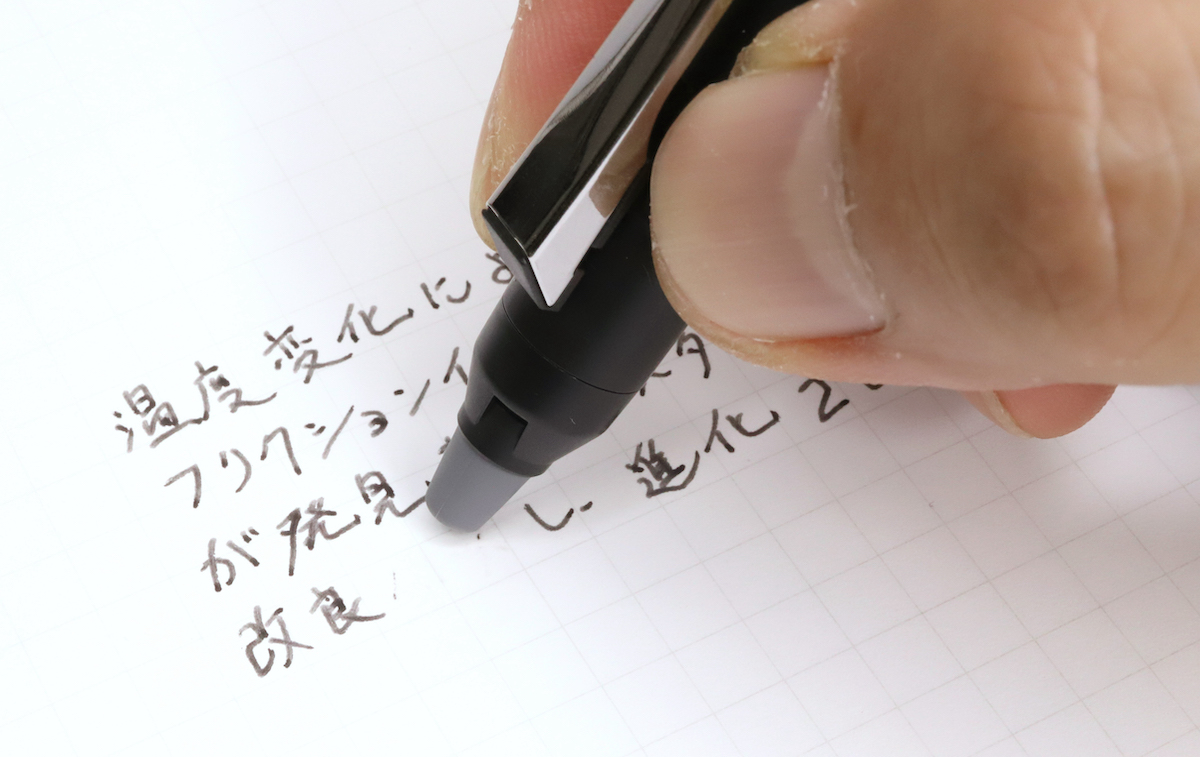 温度変化に
フリクションイ タ
が発見 し 進化
改良